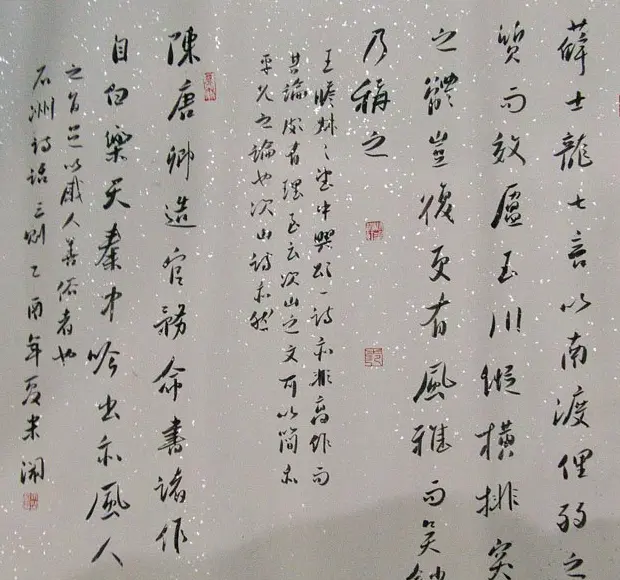 薛士龍七言以南渡俚弱之
質而效盧玉川縱橫排突
之體豈復更有風雅而吳鈔
乃稱之
王勝之之望中興頌一詩亦非高作而
其論頗有理至云次山之文可以簡亦
平允之論也次山詩亦然
陳唐卿造官務命書諸作
自白樂天秦中吟出亦風人
之旨足以感人善俗者也
石洲詩話三則乙酉年夏末閑